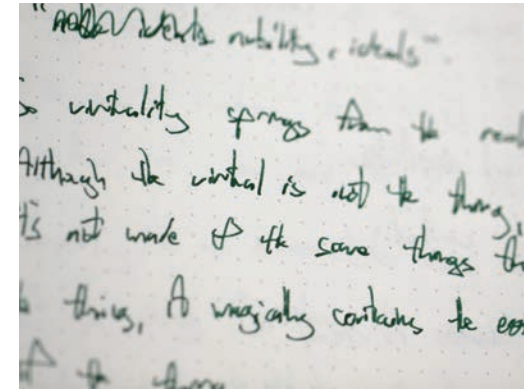 nobility, ideals".
virtuality springs from the real
Although the virtual is not the thing,
it's not made of the same things th
thing, it magically contains the ess
of the thing